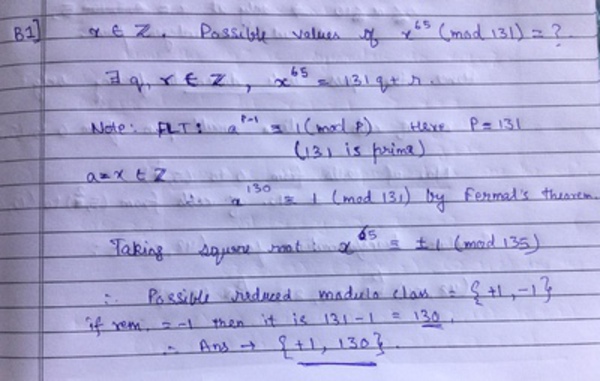 B1] x ∈ Z. Possible values of x^65 (mod 131) = ?
∃ q, r ∈ Z, x^65 = 131q + r.
Note: FLT: a^(p-1) ≡ 1 (mod p) Here P = 131
(131 is prime)
a = x ∈ Z
∴ x^130 ≡ 1 (mod 131) by Fermat's theorem.
Taking square root: x^65 ≡ ±1 (mod 135)
∴ Possible reduced modulo class = {+1, -1}
if rem. = -1 then it is 131 - 1 = 130.
∴ Ans → {+1, 130}.